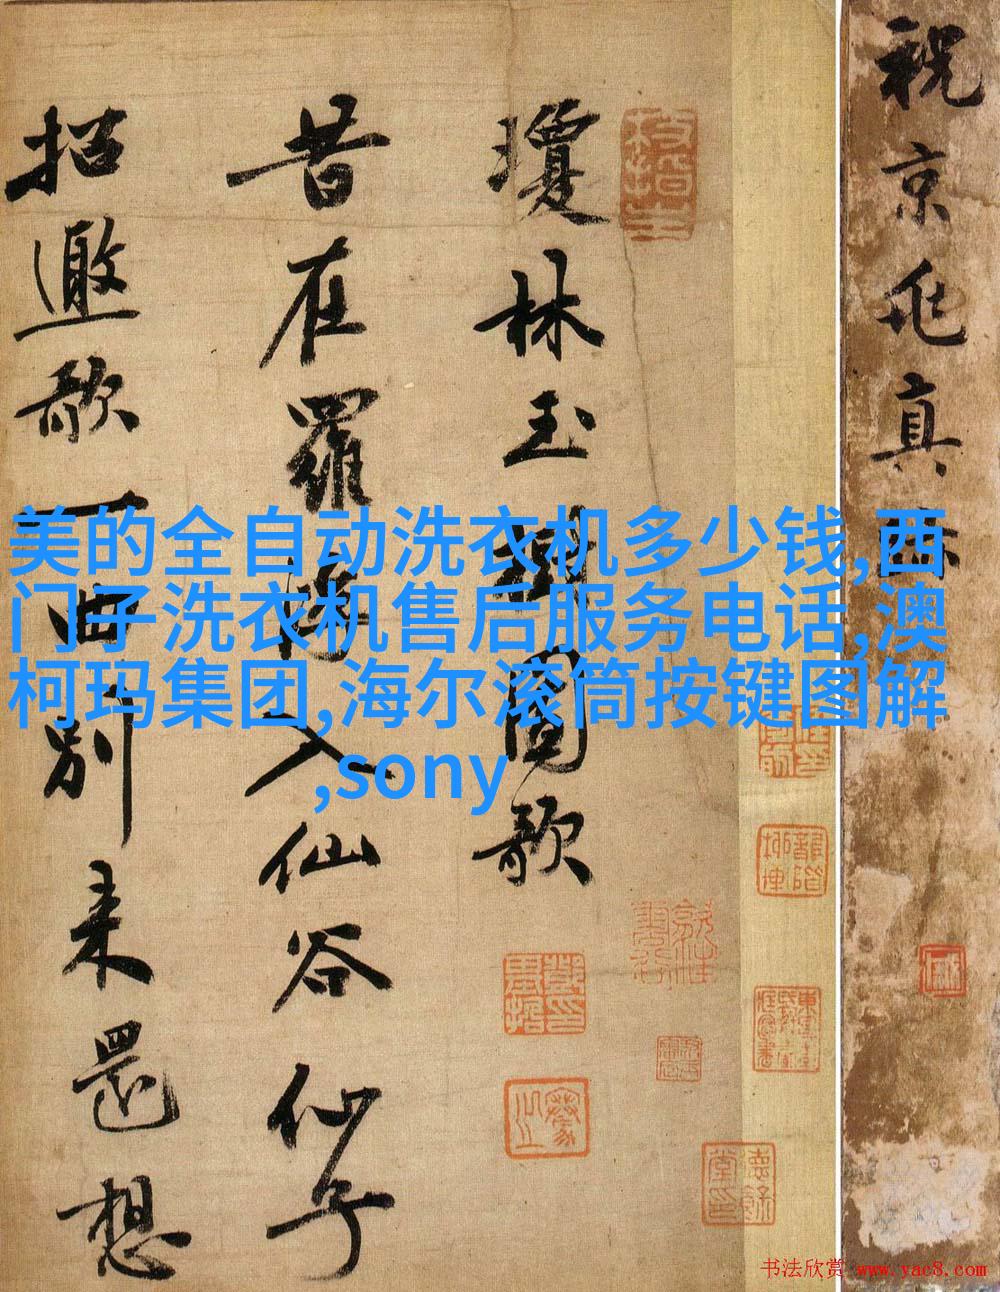 祝京兆真
瓊林玉樹圖歌
昔在羅浮入仙谷仙子
招邀歌一曲別来還想
美的全自动洗衣机多少钱,西
门子洗衣机售后服务电话,澳
柯玛集团,海尔滚筒按键图解
,sony
书法欣赏 www.yac8.com